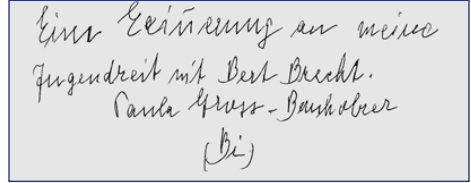 Eine Erinnerung an meine
Jugendzeit mit Bert Brecht.
Paula Gross-Banholzer
(Bi)